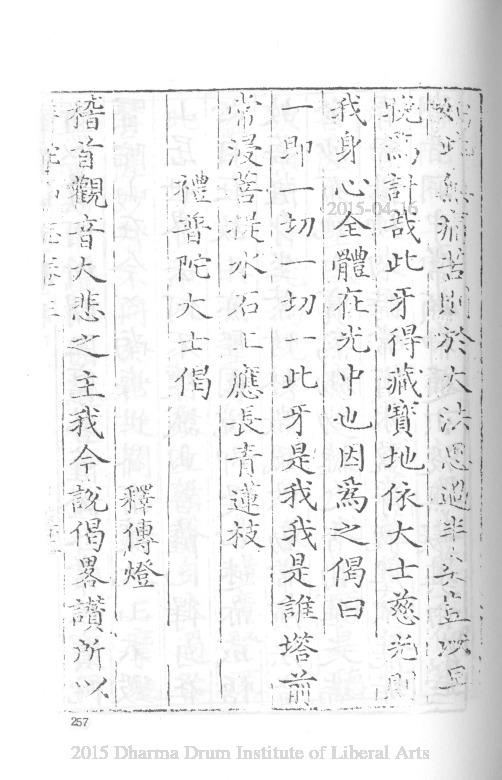 如此無痛苦則於大法思過半矣豈以是
晚爲計哉此牙得藏寶地依大士慈光則
我身心全體在光中也因爲之偈曰
一即一切一切一此牙是我我是誰塔前
常浸菩提水石上應長青蓮枝
禮普陀大士偈
釋傳燈
稽首觀音大悲之主我今說偈畧讃所以
2015-04-16
257
2015 Dharma Drum Institute of Liberal Arts